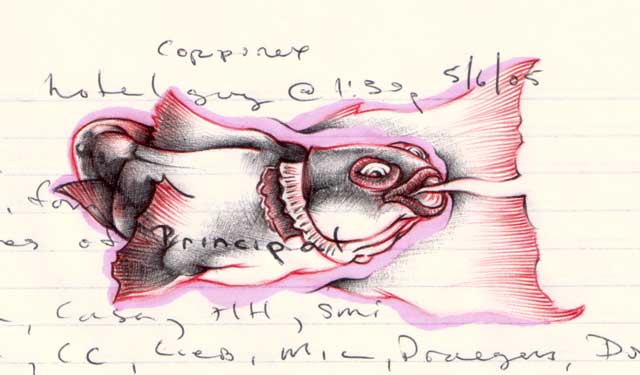 Corporex
hotel guy @ 1:30p 5/6/05
for
es of "Principal
, Casa, HH, Smi
, CC, Lieb, Mic, Draegers, Do